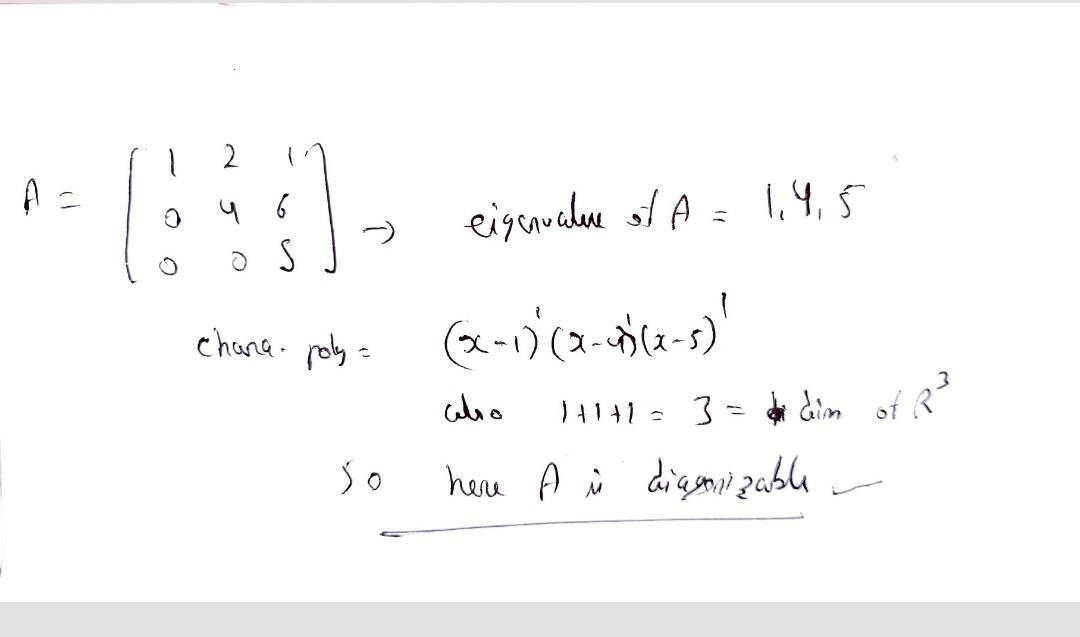 A = [ 1 2 1
0 4 6
0 0 5 ] → eigenvalue of A = 1, 4, 5
chara. poly = (x-1)¹(x-4)¹(x-5)¹
also 1+1+1 = 3 = dim of R³
so here A is diagonizable